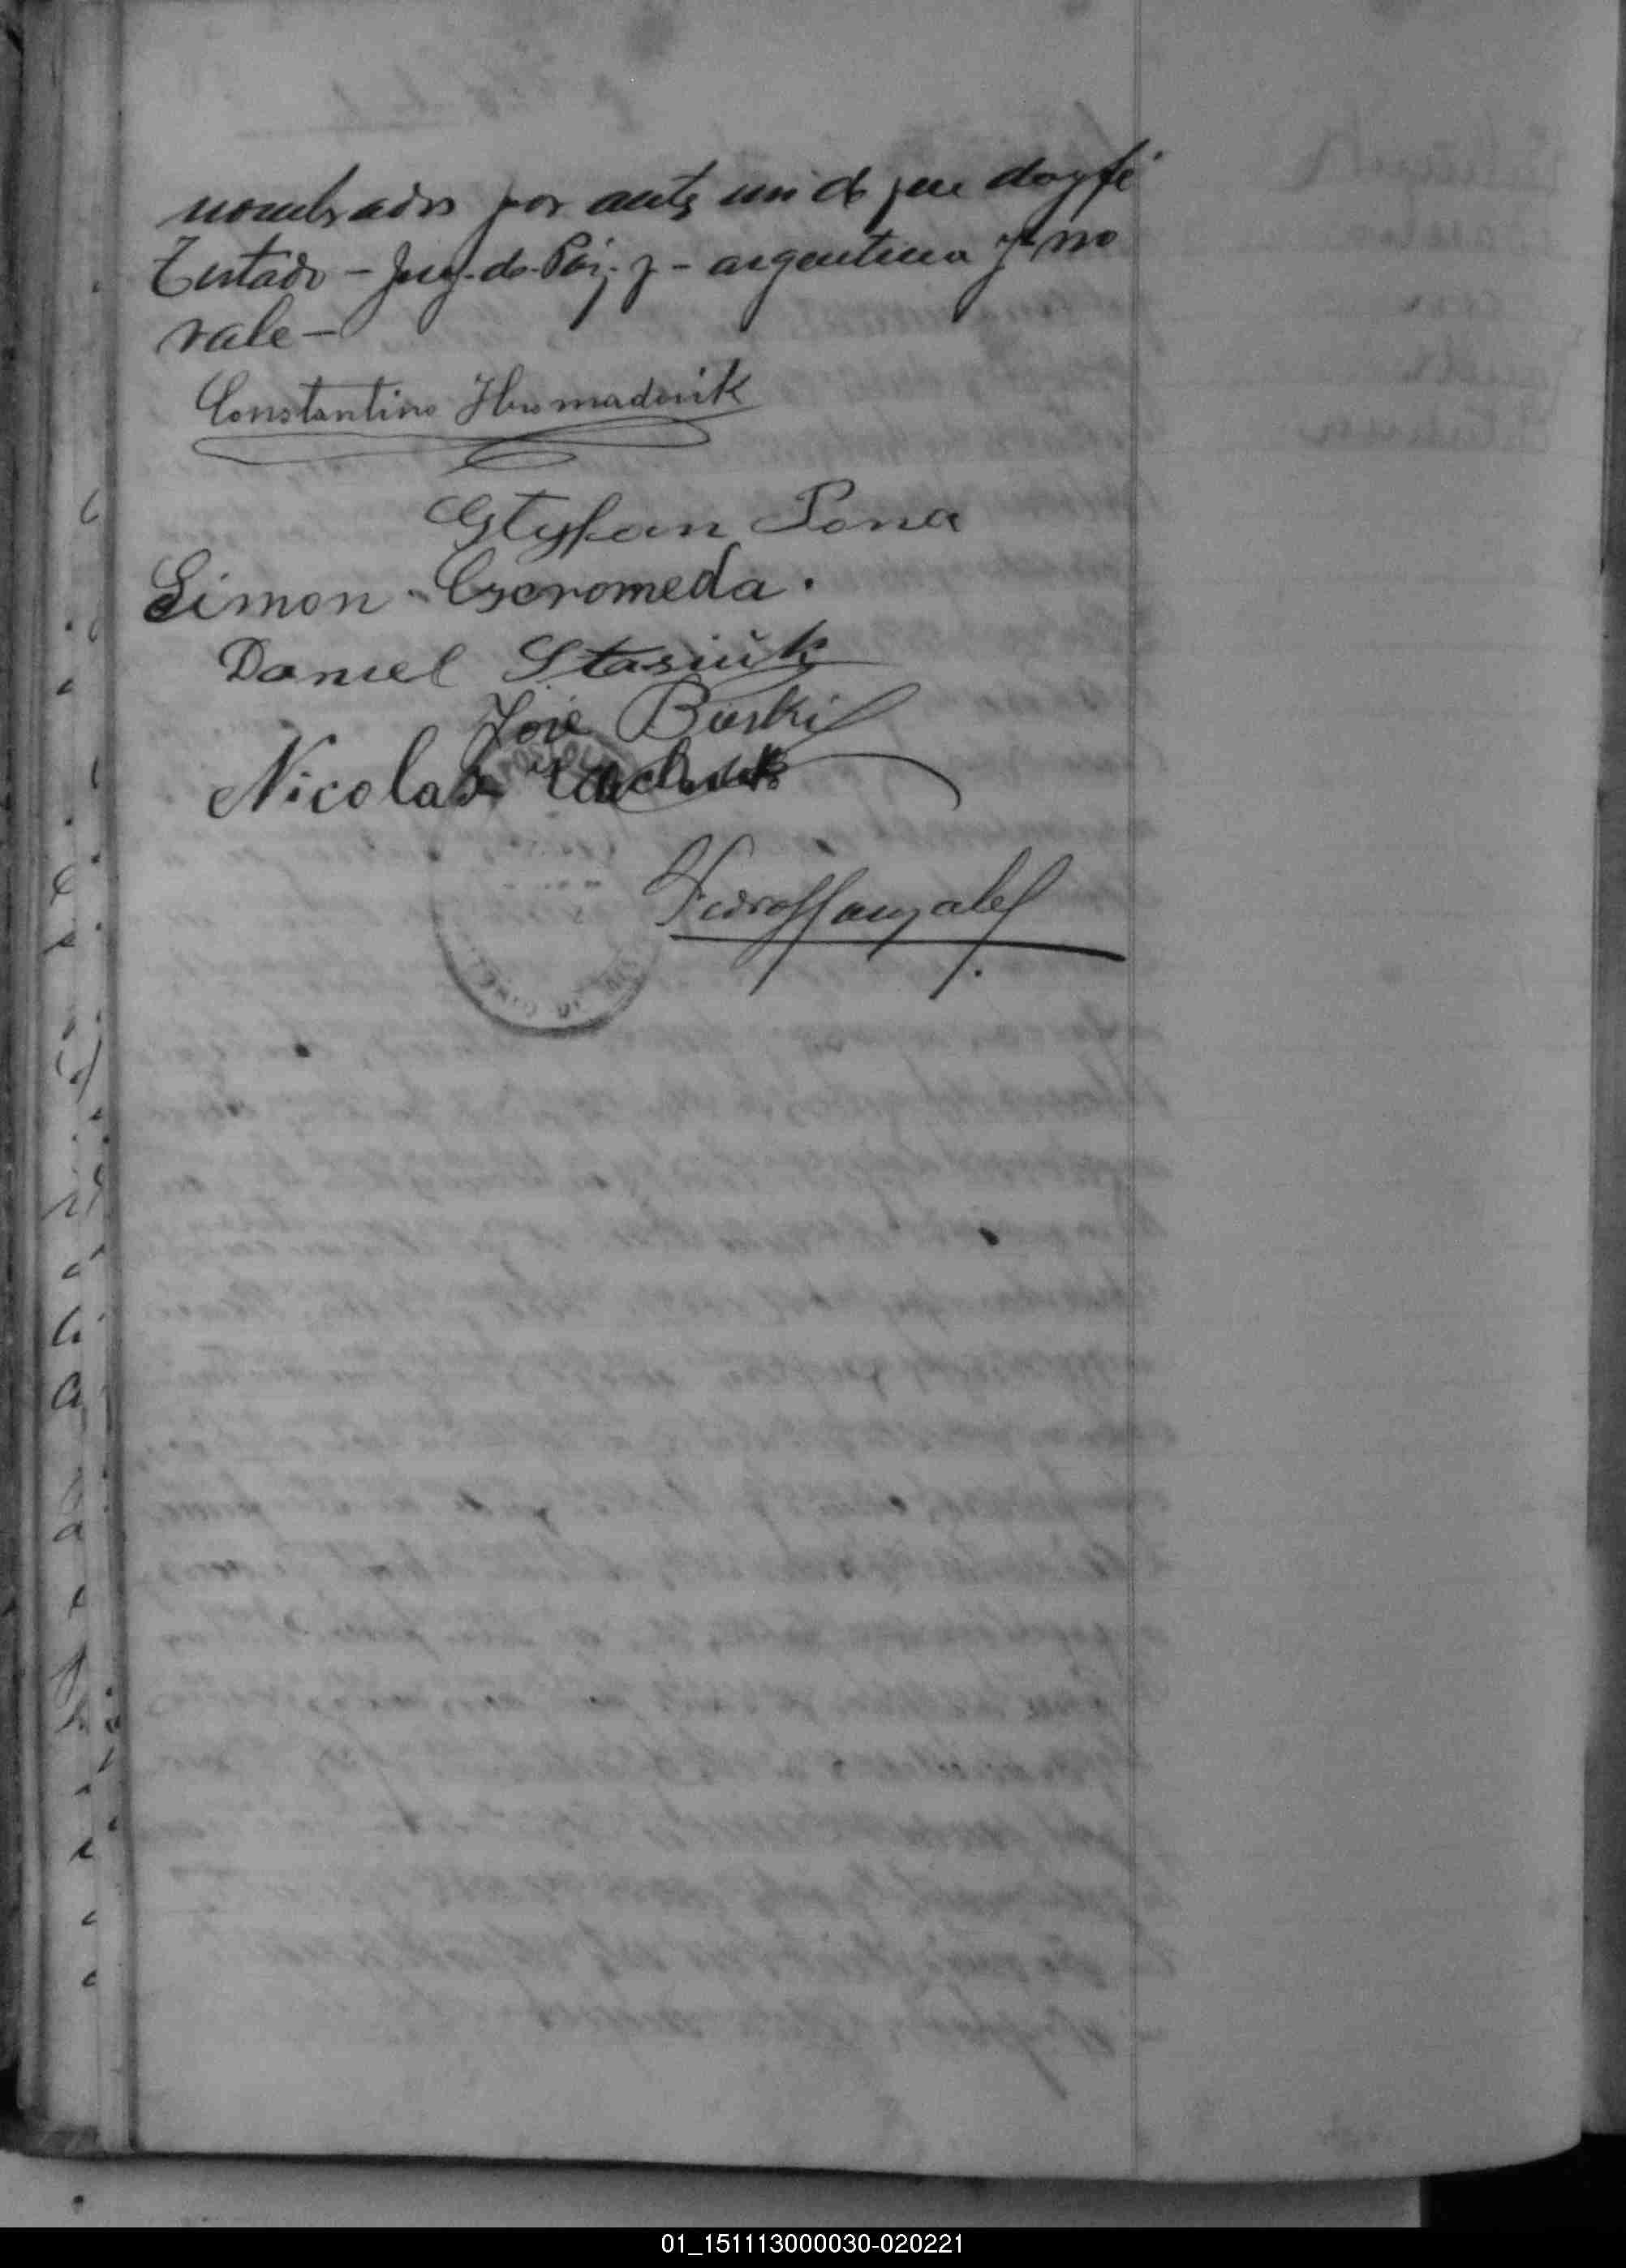 nombrados por ante mi de que doy fé
Testado - Juez de Paz y - argentina y no
vale -
Constantino Hromadsuik
Styfan Pona
Simon Czeromeda.
Daniel Stasiuk
José Burski
Nicolas
Pedro González
01_151113000030-020221